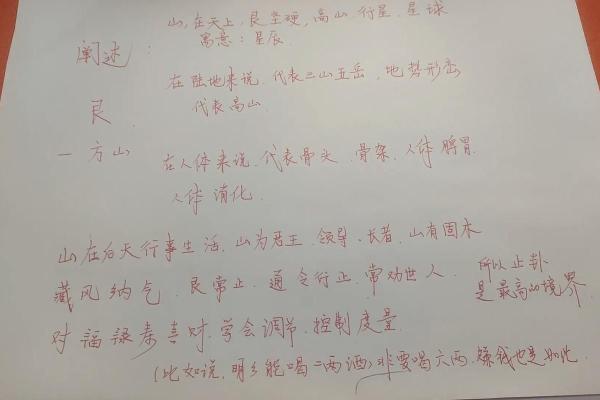 山，在天上，艮坚硬，高山，行星，星球
寓意：星辰
阐述：
在陆地来说，代表三山五岳，地势形峦
代表高山
艮
一方山
在人体来说，代表骨头、骨架、人体脾胃
人体消化
山在后天行事生活、山为君王、领导、长者、山有固本
藏风纳气、艮常止、通令行止、常劝世人、
所以止卦
是最高的境界
对福禄寿喜财、学会调节、控制度量
（比如说，明明能喝二两酒）非要喝六两、赚钱也是如此、